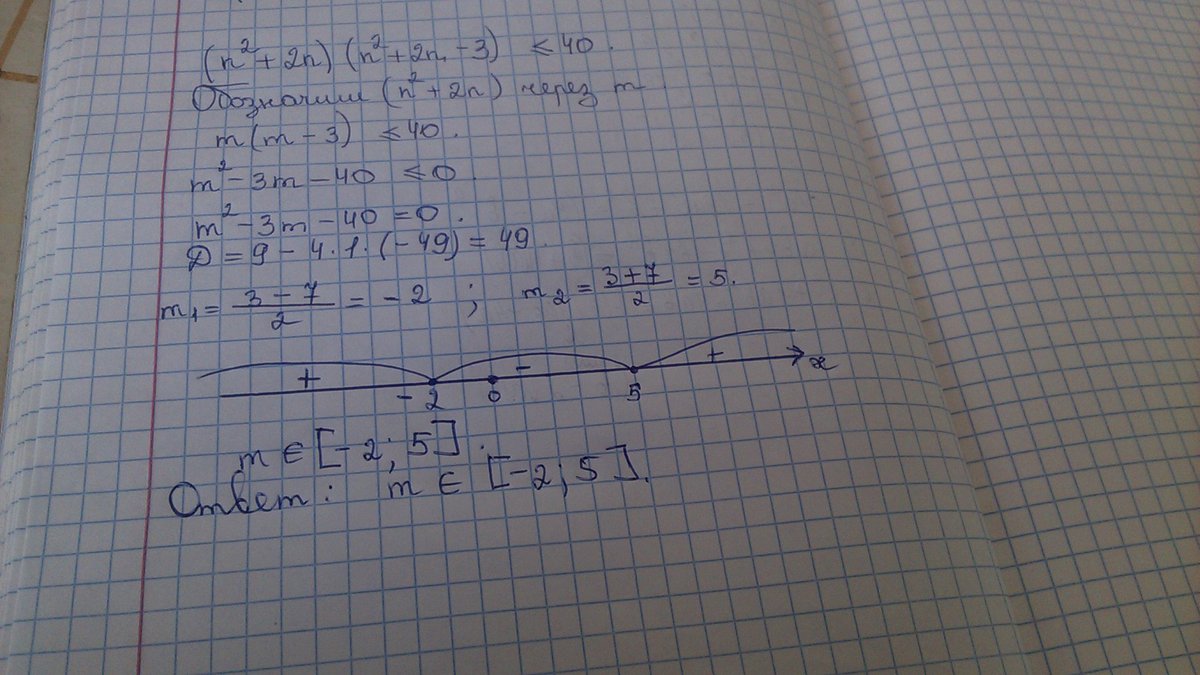 (n² + 2n) (n² + 2n - 3) ≤ 40.
Обозначим (n² + 2n) через m
m(m - 3) ≤ 40.
m² - 3m - 40 ≤ 0.
m² - 3m - 40 = 0.
D = 9 - 4·1·(-49) = 49.
m₁ = (3 - 7)/2 = -2 ; m₂ = (3 + 7)/2 = 5.
+ - +
-2 0 5 x
m ∈ [-2; 5].
Ответ: m ∈ [-2; 5].